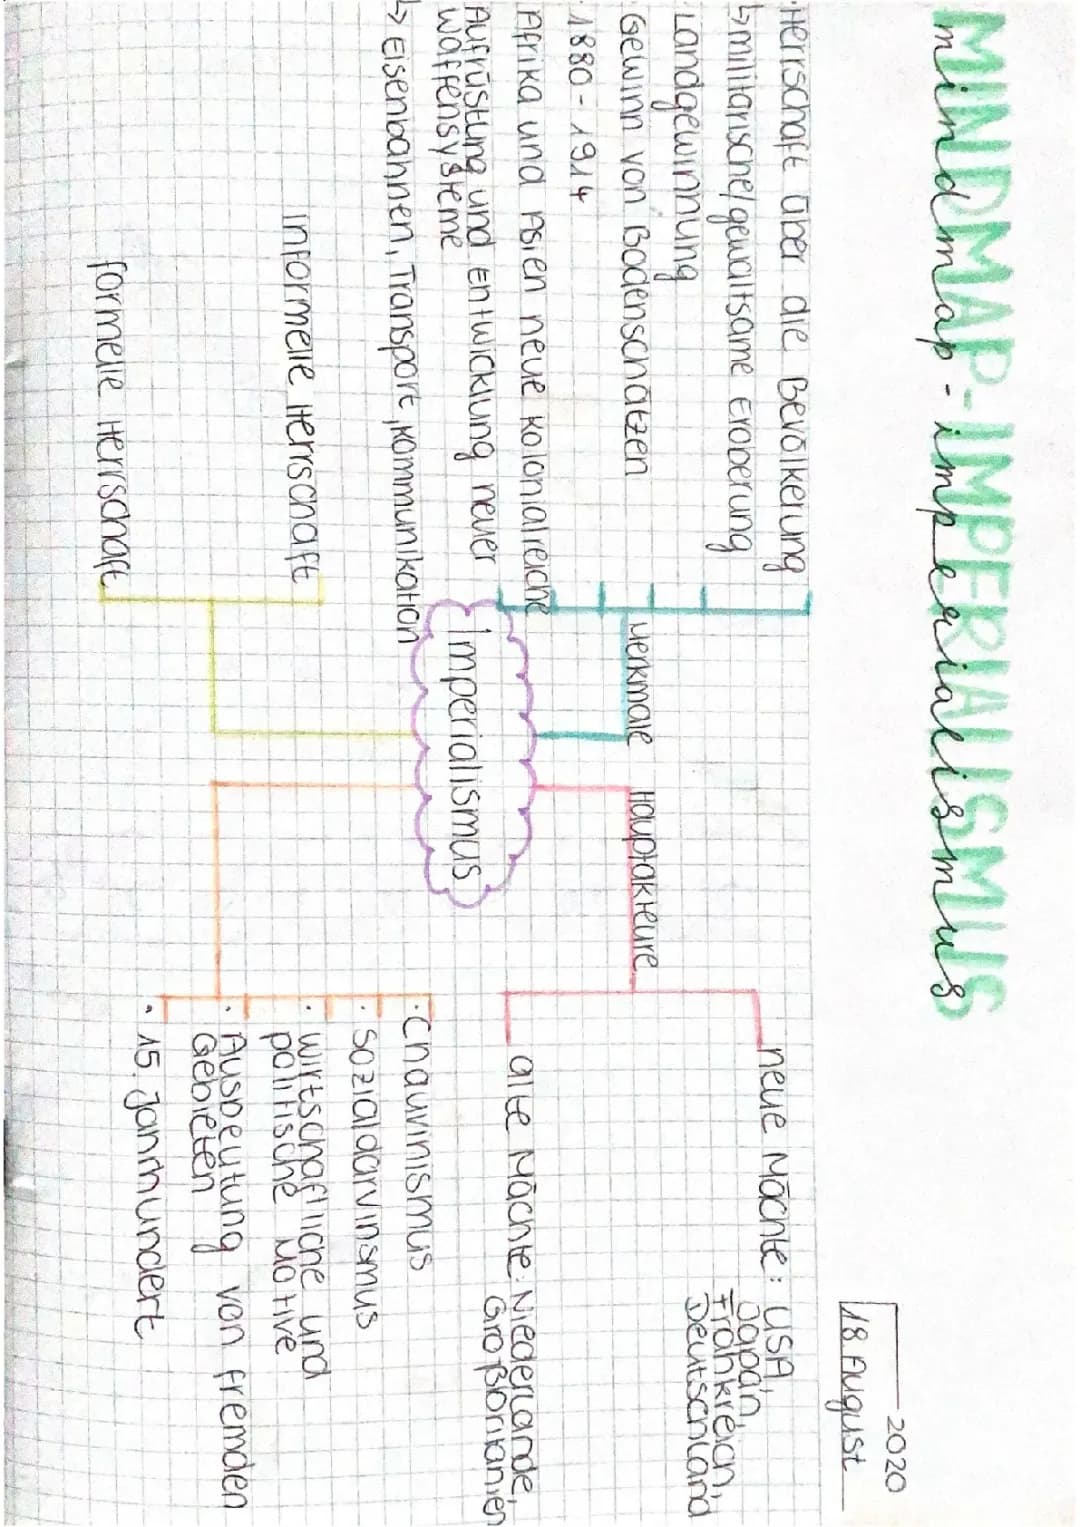 MINDMAP-IMPERIALISMUS
mindmap-imperialismus
2020
18. August
· Herrschaft über die Bevölkerung
↳ militärische/gewaltsame Eroberung
· Landgewinnung
· Gewinn von Bodenschätzen
· 1880-1914
· Afrika und Asien neue Kolonialreiche
Aufrüstung und Entwicklung neuer
Waffensysteme
↳ Eisenbahnen, Transport, Kommunikation
Merkmale
Hauptakteure
neue Mächte: USA,
Japan,
Frankreich,
Deutschland
alte Mächte: Niederlande,
Großbritanien
Imperialismus
informelle Herrschaft
formelle Herrschaft
· Chauvinismus
· Sozialdarvinsmus
· wirtschaftliche und
politische Motive
· Ausbeutung von fremden
Gebieten
· 15. Jahrhundert